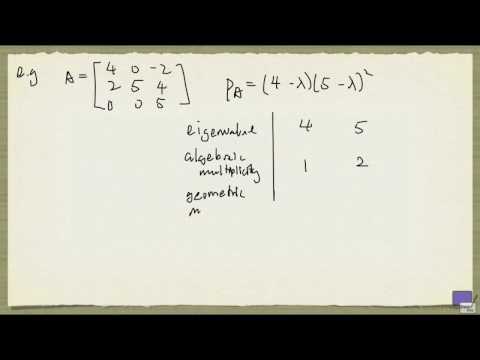 e.g A = [ 4 0 -2 P_A = (4 - λ)(5 - λ)²
2 5 4
0 0 5 ]
eigenvalue 4 5
algebraic
multiplicity 1 2
geometric
m